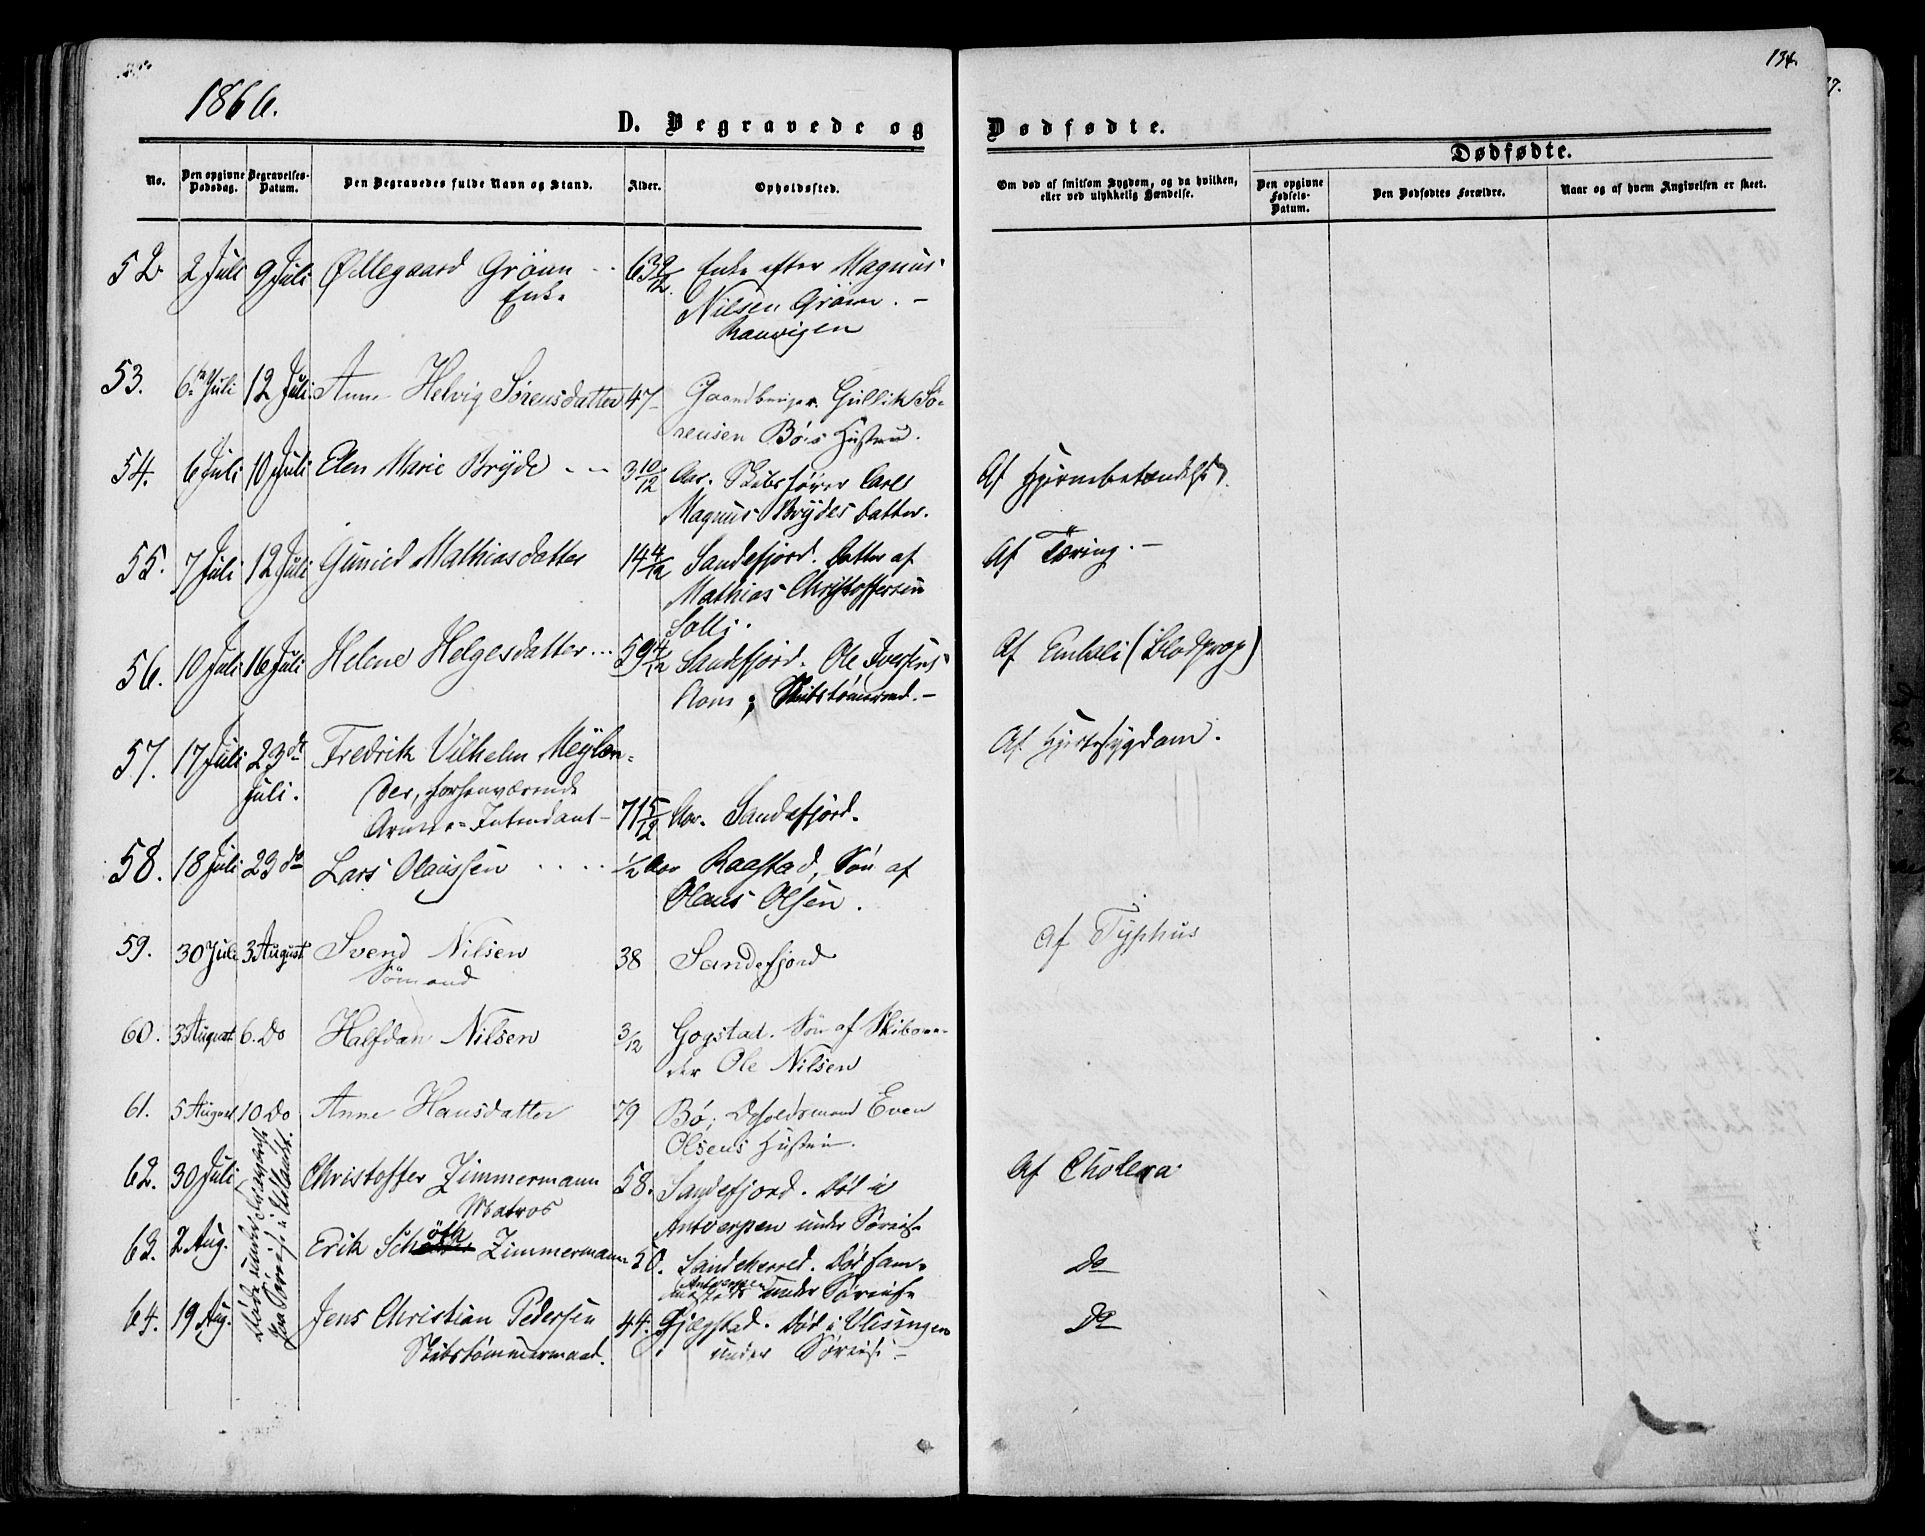 1866.
134.
D. Begravede og
Dødfødte.
Dødfødte.
No.
Den opgivne Dødsdag.
Begravelses-Datum.
Den Begravedes fulde Navn og Stand.
Alder.
Opholdssted.
Om død af smitsom Sygdom, og da hvilken, eller ved ulykkelig Hændelse.
Den opgivne Fødsels-Datum.
Den Dødfødtes Forældre.
Naar og af hvem Angivelsen er skeet.
52 2 Juli 9 Juli Øllegaard Grönn 63 9/12. Enke efter Magnus
Enke Nilsen Grönn. -
Ranvigen
53. 6te Juli 12 Juli Anne Helvig Sørensdatter 47 Gaardbruger Gullik Sö-
rensen Bö's Hustru.
54. 6 Juli 10 Juli Elen Marie Bryde 3 10/12 Aar. Skibsfører Carl Af Hjernebetændelse.
Magnus Brydes Datter.
55. 7 Juli 12 Juli Gunild Mathiasdatter 14 4/12 Sandefjord. Datter af Af Tæring. -
Mathias Christoffersen
Solli.
56. 10 Juli 16 Juli Helene Helgesdatter 59 4/12 Sandefjord. Ole Iversens Af Emboli (Blodprop)
Kone; Skibstömmermd. -
57. 17 Juli 23de Fredrik Vilhelm Meylen- Af Hjertesygdom.
Juli. der, forhenværende
Armee-Intendant - 71 5/12 Aar. Sandefjord.
58. 18 Juli 23 do Lars Olaussen 1/2 Aar Raastad, Sön af
Olaus Olsen.
59. 30 Juli 3 August Svend Nilsen 38 Sandefjord Af Typhus
Sömand
60. 3 August 6. Do Halfdan Nilsen 3/12 Gogstad. Sön af Skibs-
der Ole Nilsen
61. 5 August 10 Do Anne Hansdatter 79 Bö; Even
Olsens Hustru.
62. 30 Juli Christoffer Zimmermann 58. Sandefjord. Död i Af Cholera.
Matros Antverpen under Söreise
63. 2 Aug. Erik Schöth Zimmermann 50. Sandeherred. Död Do
Antverpen under Söreise
64. 19 Aug. Jens Christian Pedersen 44. Gjegstad. Död i Vlisingen Do
Skibstömmermand. under Söreise -
Döde under
paa Söreise i Udlandet.